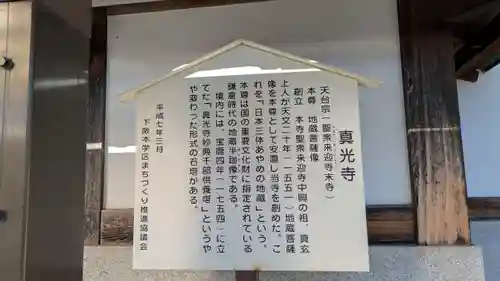 真光寺
天台宗(聖衆来迎寺末寺)
本尊 地蔵菩薩像
創立 本寺聖衆来迎寺中興の祖、真玄
上人が天文二十年(一五五一)地蔵菩薩
像を本尊として安置し当寺を創めた。こ
れを「日本三体あやめの地蔵」という。
本尊は国の重要文化財に指定されている
鎌倉時代の地蔵半珈像である。
境内には、宝暦四年(一七五四)に立
てた「真光寺妙典千部供養塔」というや
や変わった形式の石塔がある。
平成七年三月
下阪本学区まちづくり推進協議会